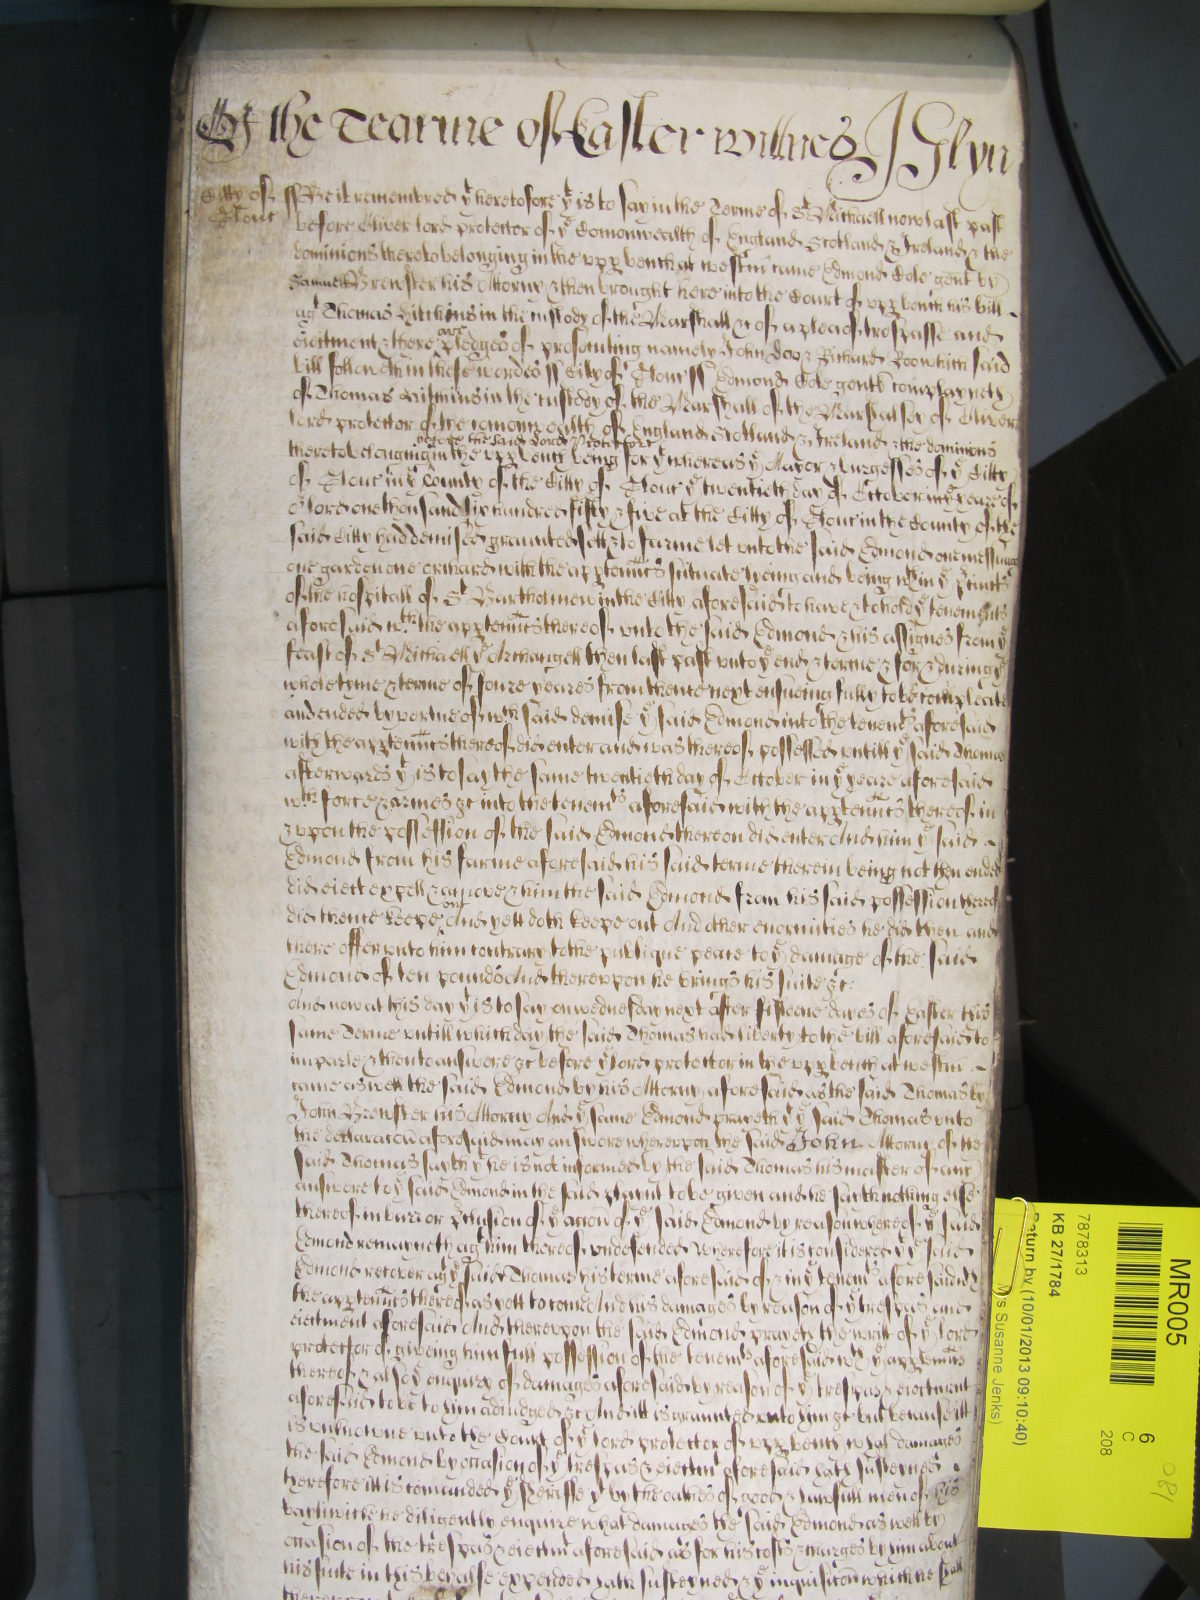 Of the Tearme of Easter witnes J Glyn
Citty of Glouc
ss Be it remembred yt heretofore yt is to say in the Terme of St Michaell now last past
before Oliver lord protector of ye Comonwealth of England Scotland & Ireland & the
dominions thereto belonging in the upp bench at westm came Edmond Cole gent by
Samuell Brewster his Attorny & then brought here into the Court of upp bench his bill
agt Thomas Hitchins in the custody of the Marshall &c of a plea of trespasse and
eiectment & there are pledges of prosecuting namely John Doo & Richard Roo which said
bill followeth in these wordes ss Citty of Glouc ss Edmond Cole gent complayneth
of Thomas Hitchins in the custody of the Marshall of the Marshalsey of Oliver
lord protector of the comonwealth of England Scotland & Ireland & the dominions
thereto belonging in the upp bench before the said Lord Protector being for yt whereas ye Mayor & burgesses of ye Citty
of Glouc in ye County of the Citty of Glouc ye twentieth day of October in ye yeare of
o lord one thousand six hundred fifty & five at the Citty of Glouc in the County of the
said Citty had demised graunted & to farme let unto the said Edmond one messuage
one garden one orchard with the apptenncs situate lyeing and being in ye
of the hospitall of St Bartholmew in the Citty aforesaid to have & to hold ye tenements
aforesaid wth the apptenncs thereof unto the said Edmond & his assignes from ye
feast of St Michaell ye Archangell then last past unto ye end & terme & for & during ye
whole tyme & terme of foure yeares from thence next ensueing fully to be compleate
and ended by vertue of wch said demise ye said Edmond into the tenemts aforesaid
with the apptenncs thereof did enter and was thereof possessed untill ye said Thomas
afterwards yt is to say the same twentieth day of October in ye yeare aforesaid
wth force & armes &c into the tenemts aforesaid with the apptenncs thereof in
& upon the possession of the said Edmond thereon did enter And him ye said
Edmond from his farme aforesaid his said terme therein being not then ended
did eiect expell & amove & him the said Edmond from his said possession thereof
did thence keepe out And yett doth keepe out And other enormities he did then and
there offer unto him contrary to the publique peace to ye damage of the said
Edmond of ten pounds And thereupon he brings his suite &c:
And now at this day yt is to say on wednesday next after fifteene dayes of Easter this
same Terme untill which day the said Thomas had liberty to the bill aforesaid to
imparle & then to answere &c before ye lord protector in the upp bench at westm
came aswell the said Edmond by his Attorny aforesaid as the said Thomas by
John Brewster his Attorny And ye same Edmond prayeth yt ye said Thomas unto
the declaracon aforesaid may answere whereupon the said John Attorny of the
said Thomas sayth yt he is not informed by the said Thomas his master of any
answere to ye said Edmond in the said plaint to be given and he sayth nothing else
thereof in barr or of ye accon of ye said Edmond by reason whereof ye said
Edmond remayneth agt him thereof undefended Wherefore it is considered yt ye said
Edmond recover agt ye said Thomas his terme aforesaid of & in ye tenemts aforesaid wth
the apptenncs thereof as yett to come And his damages by reason of ye trespas and
eiectment aforesaid And thereupon the said Edmond prayeth the writt of ye lord
protector of giveing him full possession of the tenemts aforesaid wth ye apptenncs
thereof & also ye enquiry of damages aforesaid by reason of ye trespas & eiectment
aforesaid to be to him adiudged &c And itt is graunted unto him &c but because itt
is unknowne unto the Court of ye lord protector of upp bench what damages
the said Edmond by occasion of ye trespas & eiectm aforesaid hath susteyned
therefore itt is comanded ye Sheriffe yt by the oathes of good & lawfull men of his
bayliwicke he diligently enquire what damages the said Edmond as well by
occasion of the trespas & eiectm aforesaid as for his costs & charges by him about
his suite in this behalfe expended hath susteyned & ye inquisicon which he shall
MR005
6
C
208
7878313
KB 27/1784
Return by (10/01/2013 09:10:40)
Mrs Susanne Jenks)